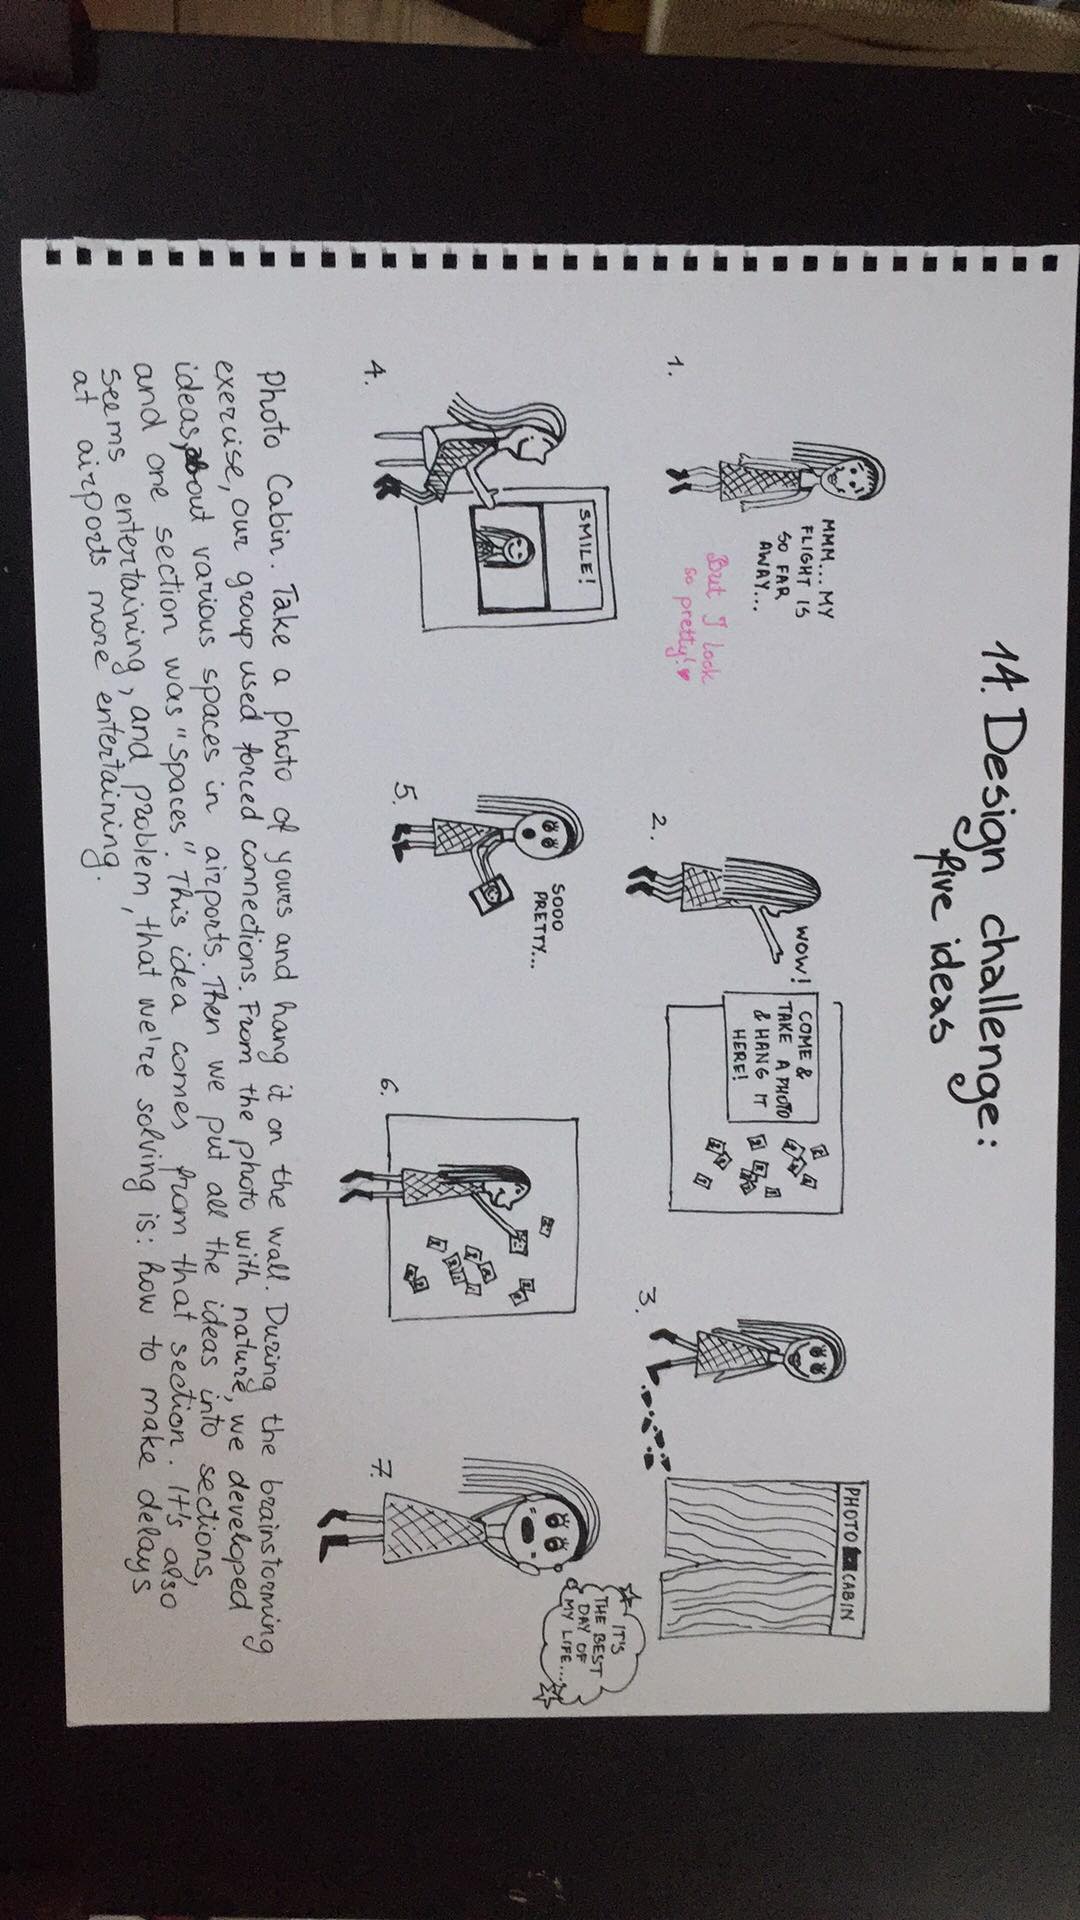 14. Design challenge:
five ideas
1.
MMM... MY
FLIGHT IS
SO FAR
AWAY...
But I look
so pretty!
2.
WOW!
COME &
TAKE A PHOTO
& HANG IT
HERE!
3.
PHOTO CABIN
4.
SMILE!
5.
SOOO
PRETTY...
6.
7.
IT'S
THE BEST
DAY OF
MY LIFE...
Photo Cabin. Take a photo of yours and hang it on the wall. During the brainstorming
exercise, our group used forced connections. From the photo with nature, we developed
ideas, about various spaces in airports. Then we put all the ideas into sections,
and one section was "spaces". This idea comes from that section. It's also
seems entertaining, and problem, that we're solving is: how to make delays
at airports more entertaining.